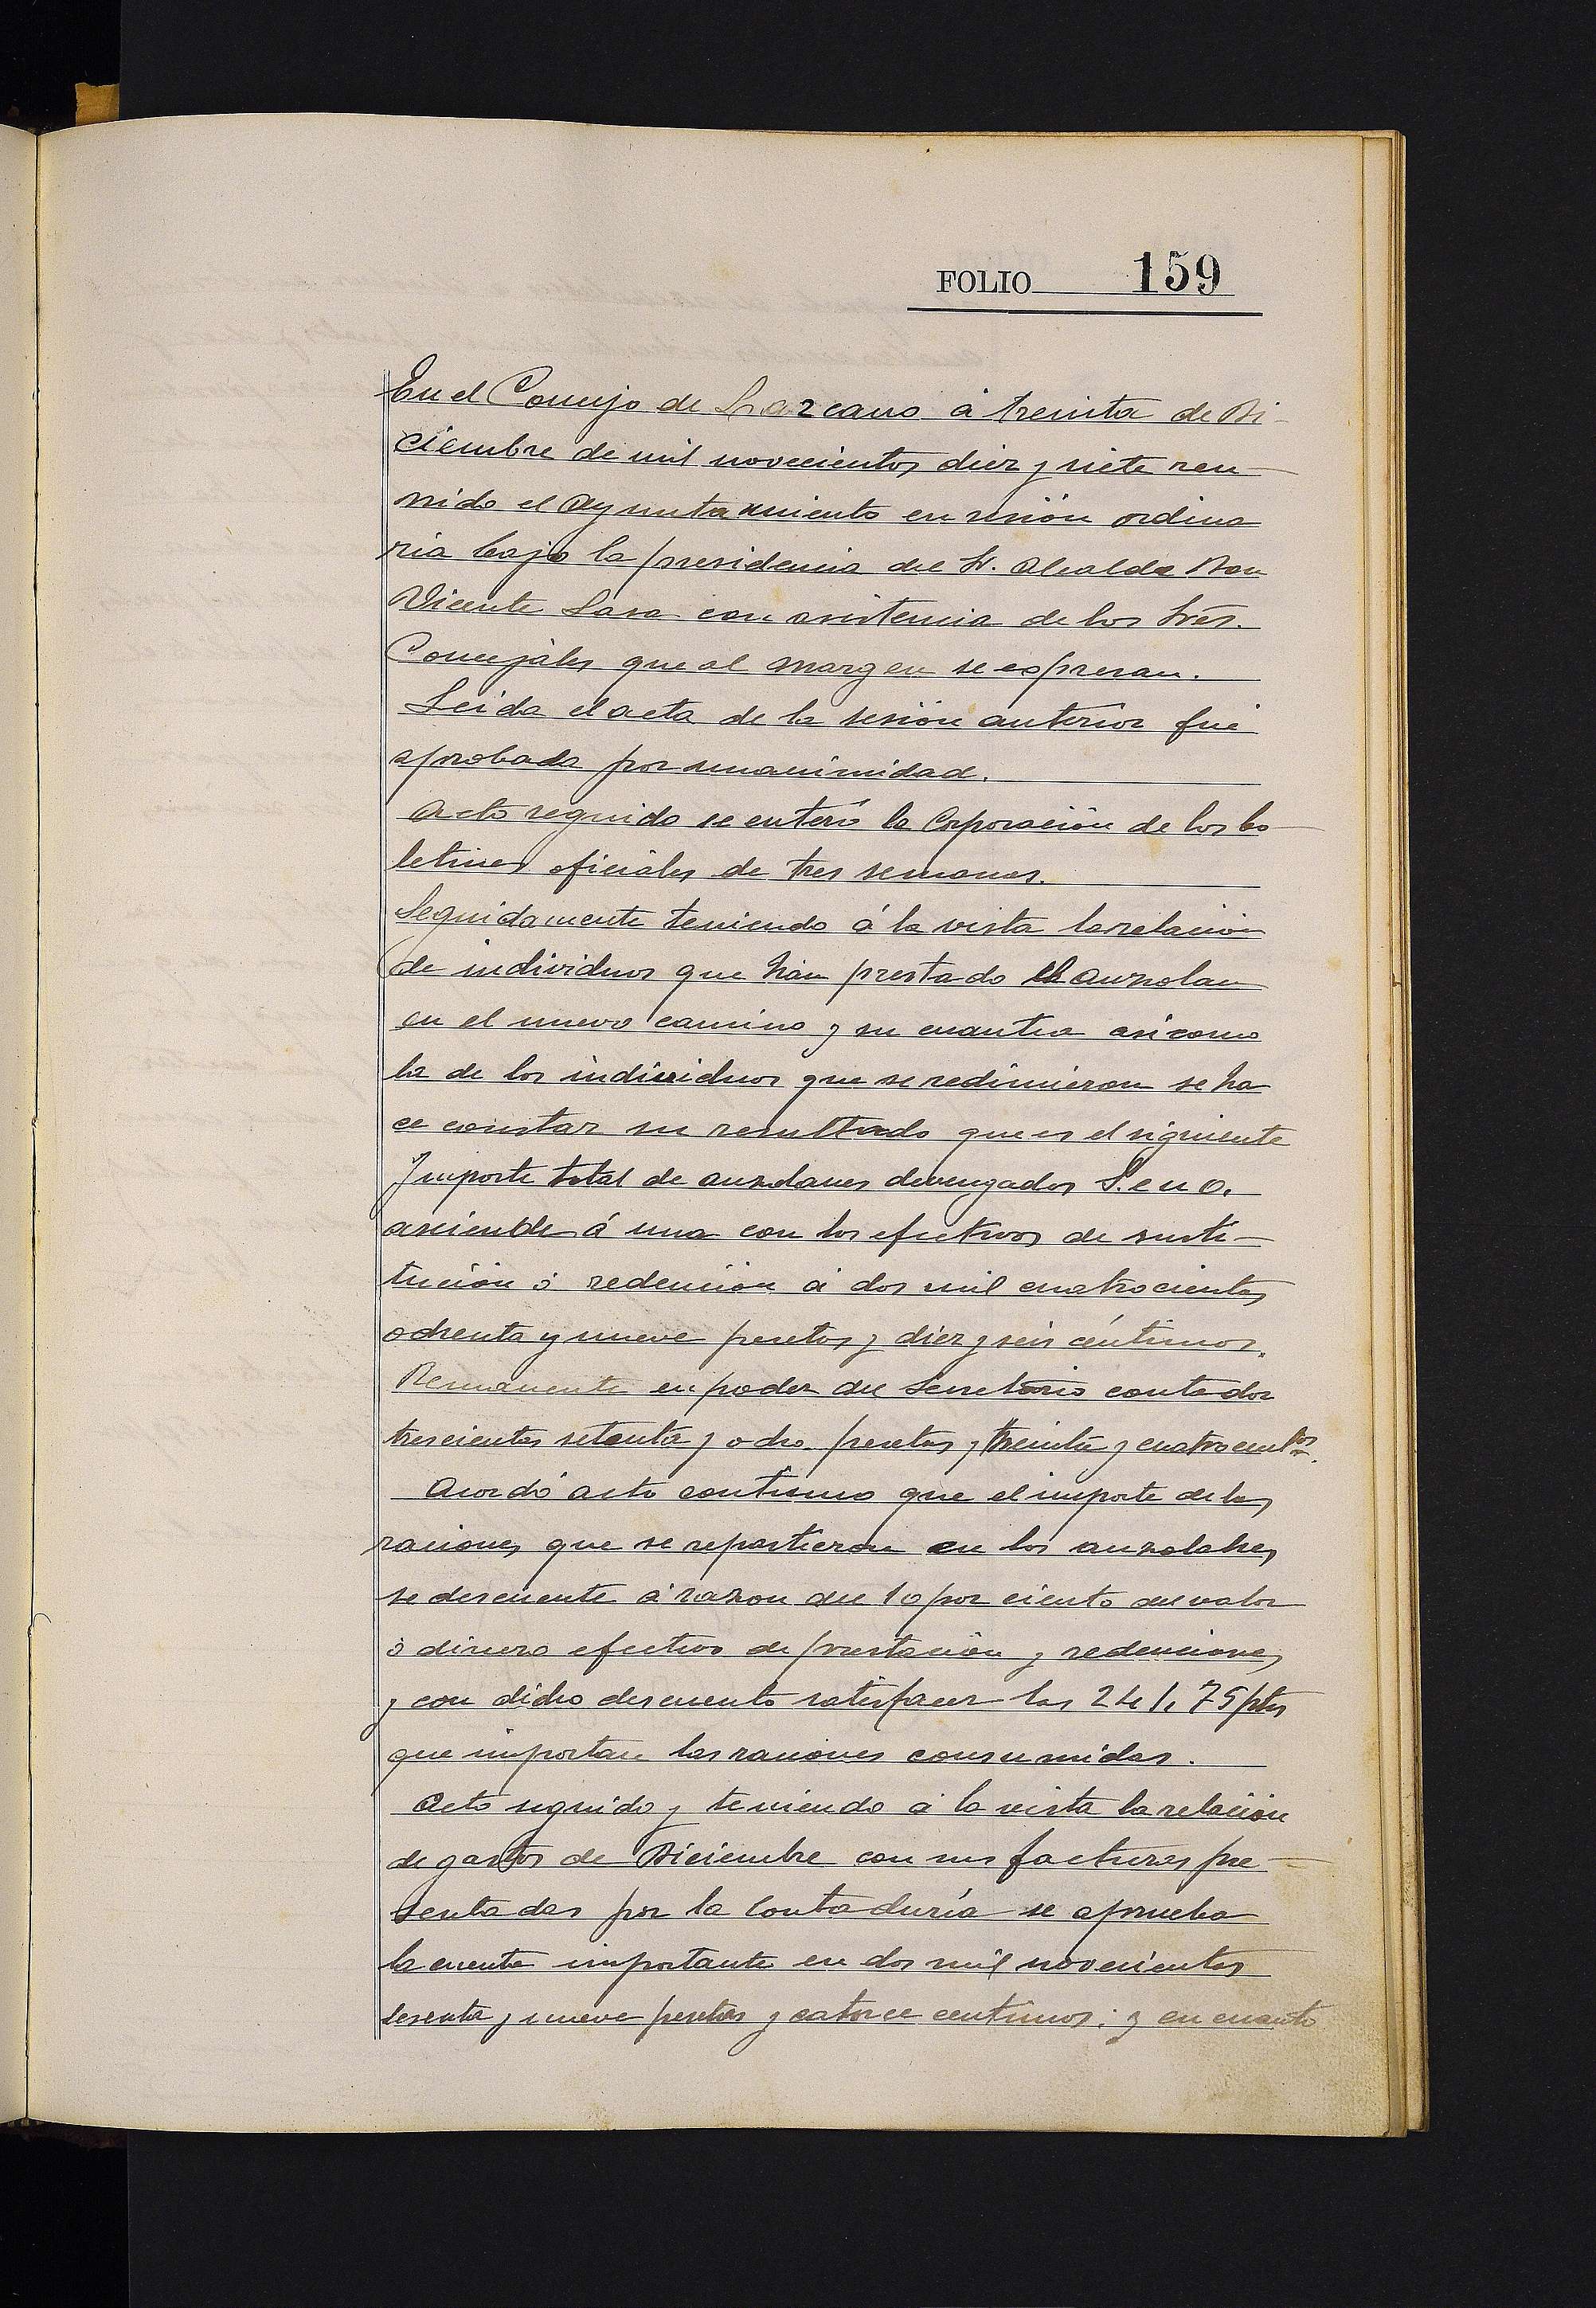 FOLIO 159
En el Concejo de Lazcano á treinta de Di-
ciembre de mil novecientos diez y siete reu-
nido el Ayuntamiento en sesión ordina
ria bajo la presidencia del Sr. Alcalde Don
Vicente Lasa con asistencia de los Sres.
Concejales que al margen se expresan.
Leida el acta de la sesión anterior fué
aprobada por unanimidad.
Acto seguido se enteró la Corporación de los bo-
letines oficiales de tres semanas.
Seguidamente teniendo á la vista la relación
de individuos que han prestado el auzolan
en el nuevo camino y su cuantia asi como
la de los individuos que se redimieron se ha
ce constar su resultado que es el siguiente
Importe total de auzolanes devengados S. e u o.
asciende á una con los efectivos de susti-
tución ó redención á dos mil cuatrocientas
ochenta y nueve pesetas y diez y seis céntimos.
Remanente en poder del Secretario contador
trescientas setenta y ocho pesetas y treinta y cuatro cent.os
Acordó acto continuo que el importe de las
raciones que se repartieron en los auzolanes
se descuente á razon del 10 por ciento del valor
ó dinero efectivo de prestación y redenciones
y con dicho descuento satisfacer las 241,75 ptas
que importan las raciones consumidas.
Acto seguido y teniendo á la vista la relación
de gastos de Diciembre con sus facturas pre-
sentadas por la Contaduría se aprueba
la cuenta importante en dos mil novecientas
sesenta y nueve pesetas y catorce centimos; y en cuanto